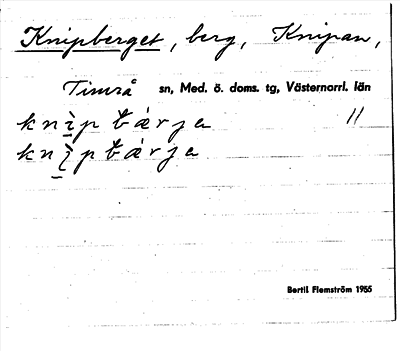 Knipberget, berg, Knipan,
Timrå sn, Med. ö. doms. tg, Västernorrl. län
knìp bàrja 11
knìp bàrja
Bertil Flemström 1955